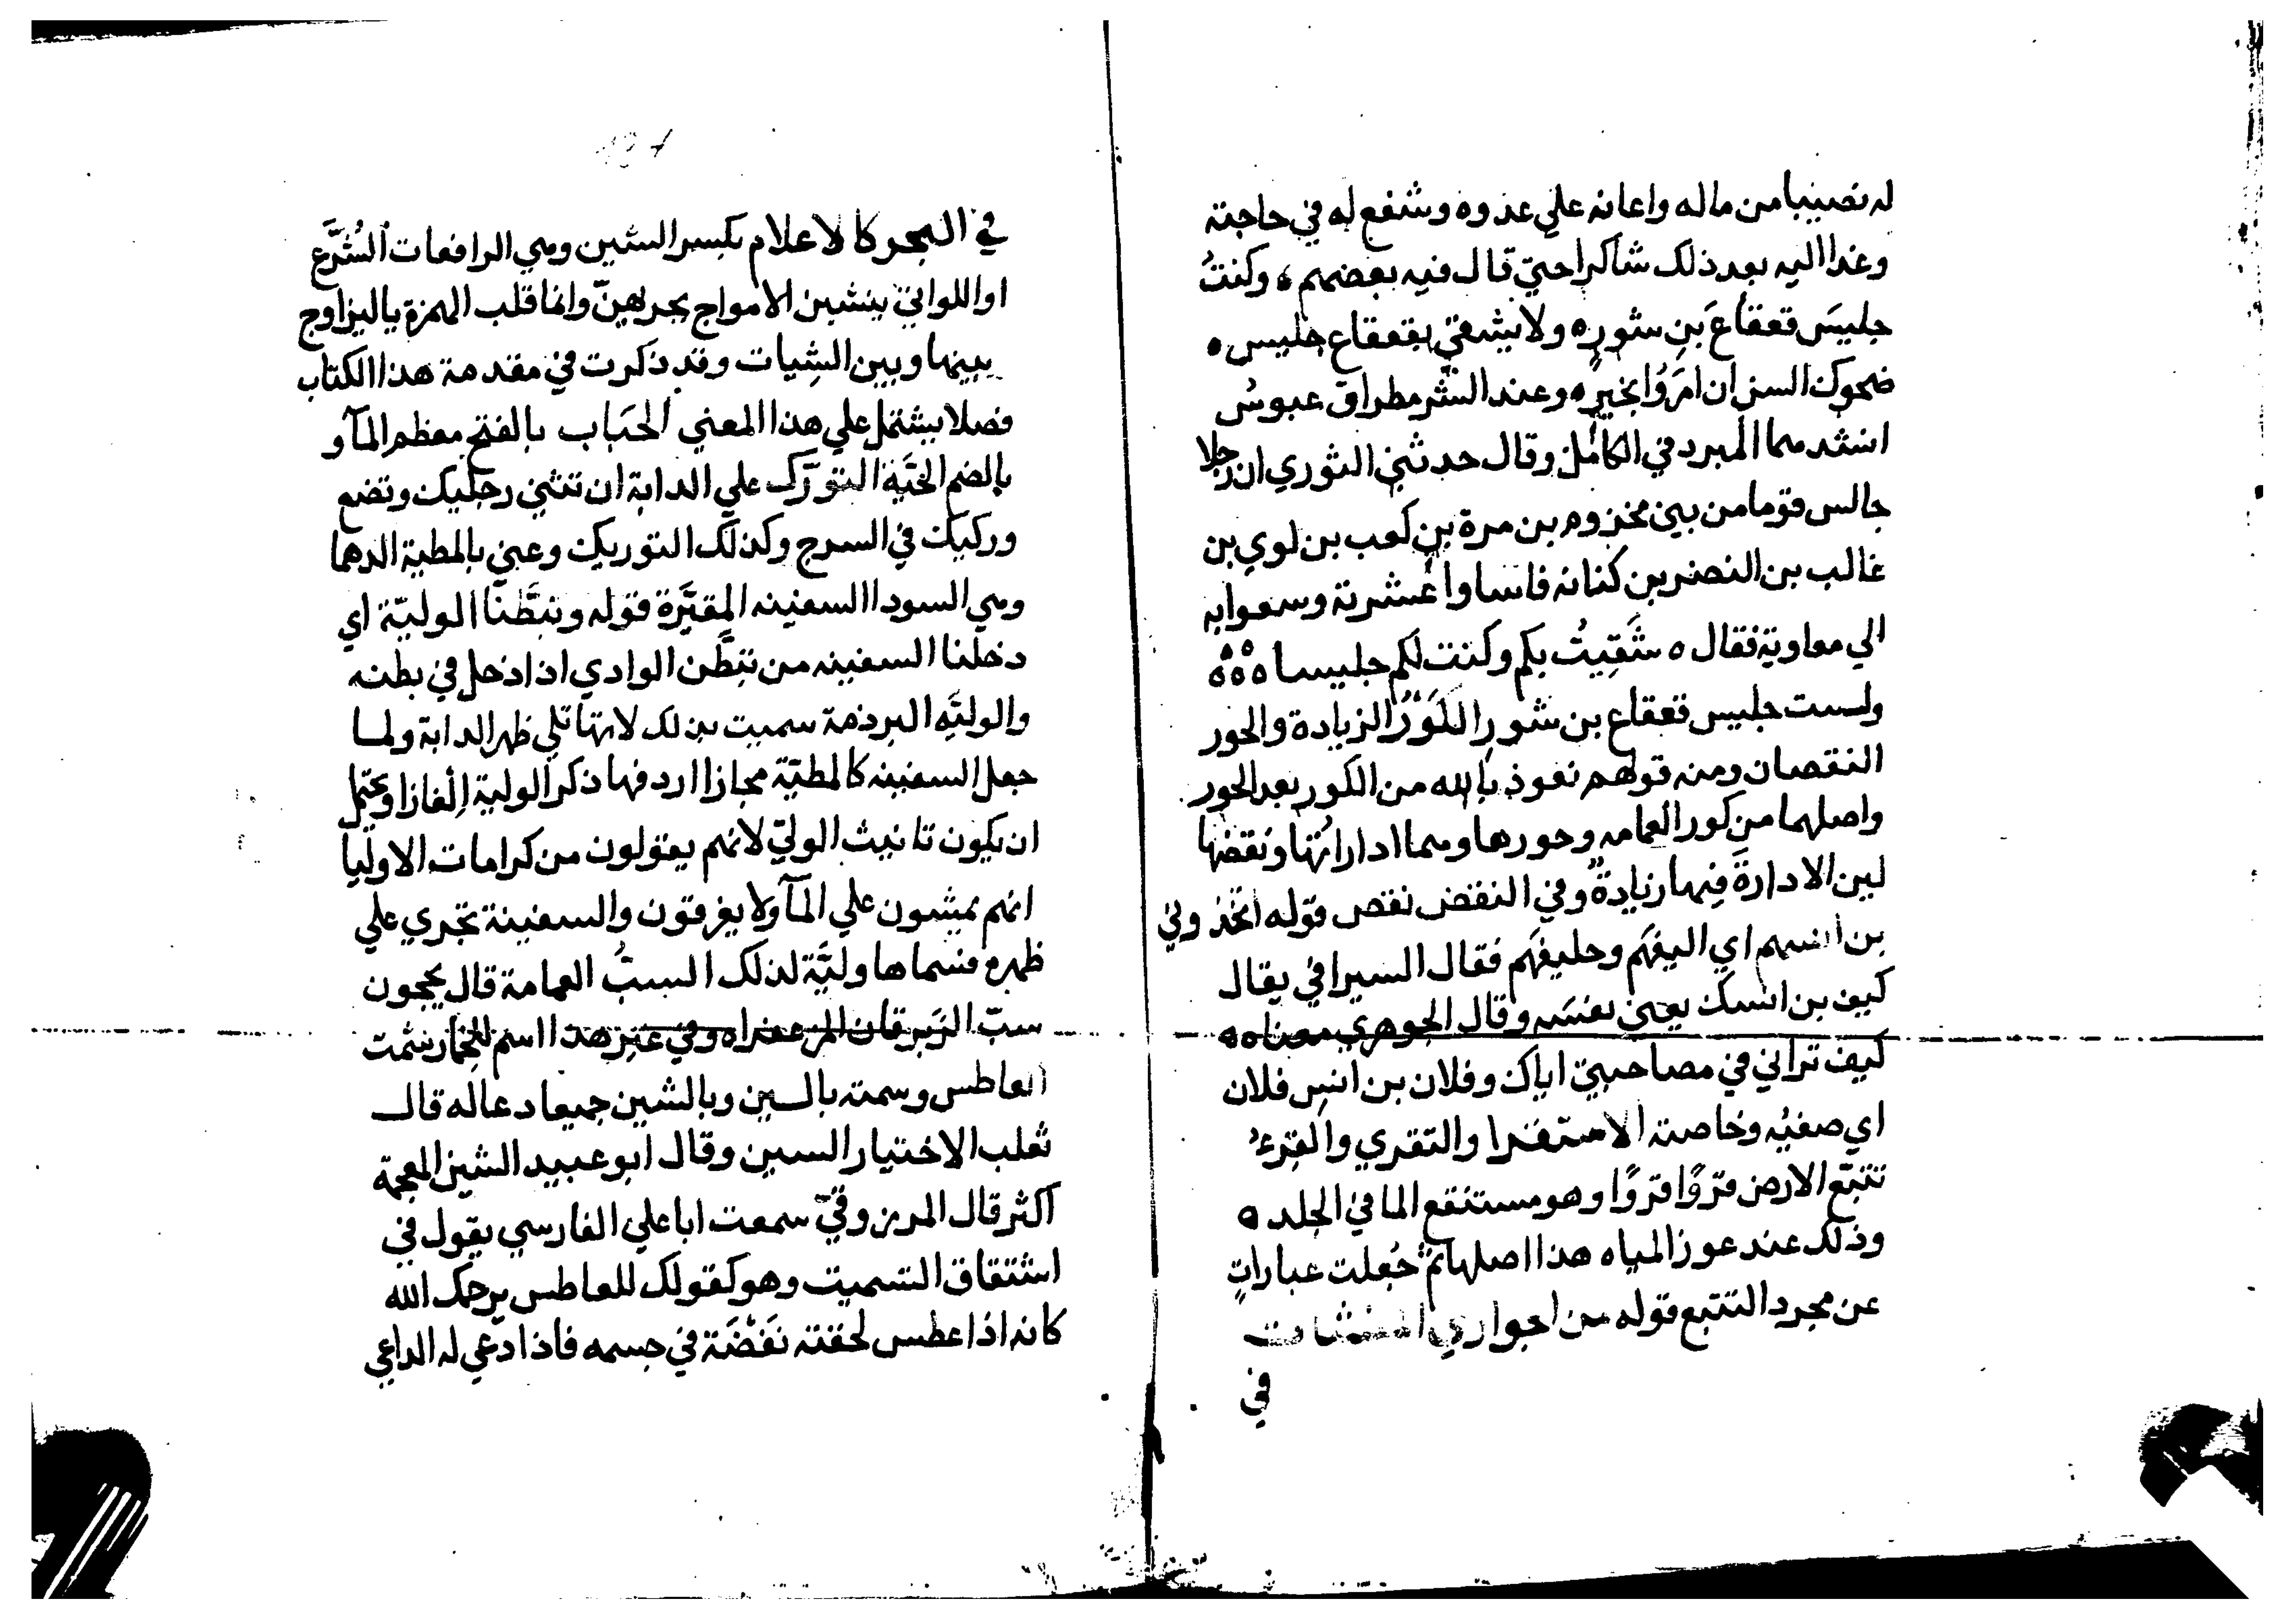 له نصيبا من ماله واعانه علي عدوه وشفع له في حاجته
وغدا اليه بعد ذلك شاكرا حتي قال فيه بعضهم، وكنتُ
جليسَ قعقاعَ بنِ شورٍه ولا يشقي بقعقاع جليس ه
ضحوك السن ان امَرُوا بخيرٍه وعند الشر مطراق عبوسُ
انشدهما المبرد في الكامل وقال حدثني التوري ان رجلا
جالس قوما من بني مخزوم بن مرة بن كعب بن لوي بن
غالب بن النضر بن كنانه فاساوا عُشرته وسعوا به
الي معاوية فقال ه شَقِيتُ بكم وكنت لكم جليسا ه ه ه
ولست جليس قعقاع بن شورٍ الكَوْرُ الزيادة والحور
النقصان ومنه قولهم نعوذ بالله من الكور بعد الحور
واصلهما من كور العمامه وحورها وهما ادارتُها ونقضها
لين الادارةَ فيها زيادةٌ وفي النقض نقص قوله اتخذوني
بن انسهم اي اليفهَم وحليفهَم فقال السيرافي يقال
كيف بن انسك يعني نفسَه وقال الجوهري معناه ه
كيف تراني في مصاحبتي اياك وفلان بن انسِ فلان
اي صفيُه وخاصته الاستقرا والتقري والقِرءُ
تتبّع الارض قروًا قروًا وهو مستنقع الما في الجلد ه
وذلك عند عوز المياه هذا اصلها ثم جُعلت عباراتٍ
عن مجرد التتبع قوله من الجواري المنشات
في
في البحر كالاعلام بكسر الشين وهي الرافعات الشُرَّع
او اللواتي ينشين الامواج بجريهنّ وانما قلب الهمزة يا ليزاوج
بينها وبين الشِيات وقد ذكرت في مقدمة هذا الكتاب
فصلا يشتمل علي هذا المعني الحَبَاب بالفتح معظم المآ و
بالضم الحَيَّة التورّك علي الدابة ان تثني رجليك وتضع
وركيك في السرج وكذلك التوريك وعني بالمطية الدهما
وهي السودا السفينه المُقيَّرة قوله وتبَطَّنَا الوليّة اي
دخلنا السفينه من تبَطَّن الوادي اذا دخل في بطنه
والوليَّه البرذعة سميت بذلك لانها تلي ظهر الدابة ولما
جعل السفينه كالمطيّة مجازا اردفها ذكر الولية اِلغازا ويحتمل
ان يكون تانيث الوليّ لانهم يقولون من كرامات الاوليا
انهم يمشون علي المآ ولا يغرقون والسفينة تجري علي
ظهره فسماها وليَّة لذلك السِبُّ العمامة قال يحجون
سبّ الزِبرقان المزعفرا ه وفي غير هذا اسم للخمار شمت
العاطس وسمته بالسين وبالشين جميعا دعا له قال
ثعلب الاختيار السين وقال ابو عبيد الشين المعجمة
اكثر قال المرزوقيّ سمعت ابا علي الفارسي يقول في
اشتقاق التسميت وهو كقولك للعاطس يرحمك الله
كانه اذا عطس لحقته نَفْضَة في جسمه فاذا دعي له الداعي